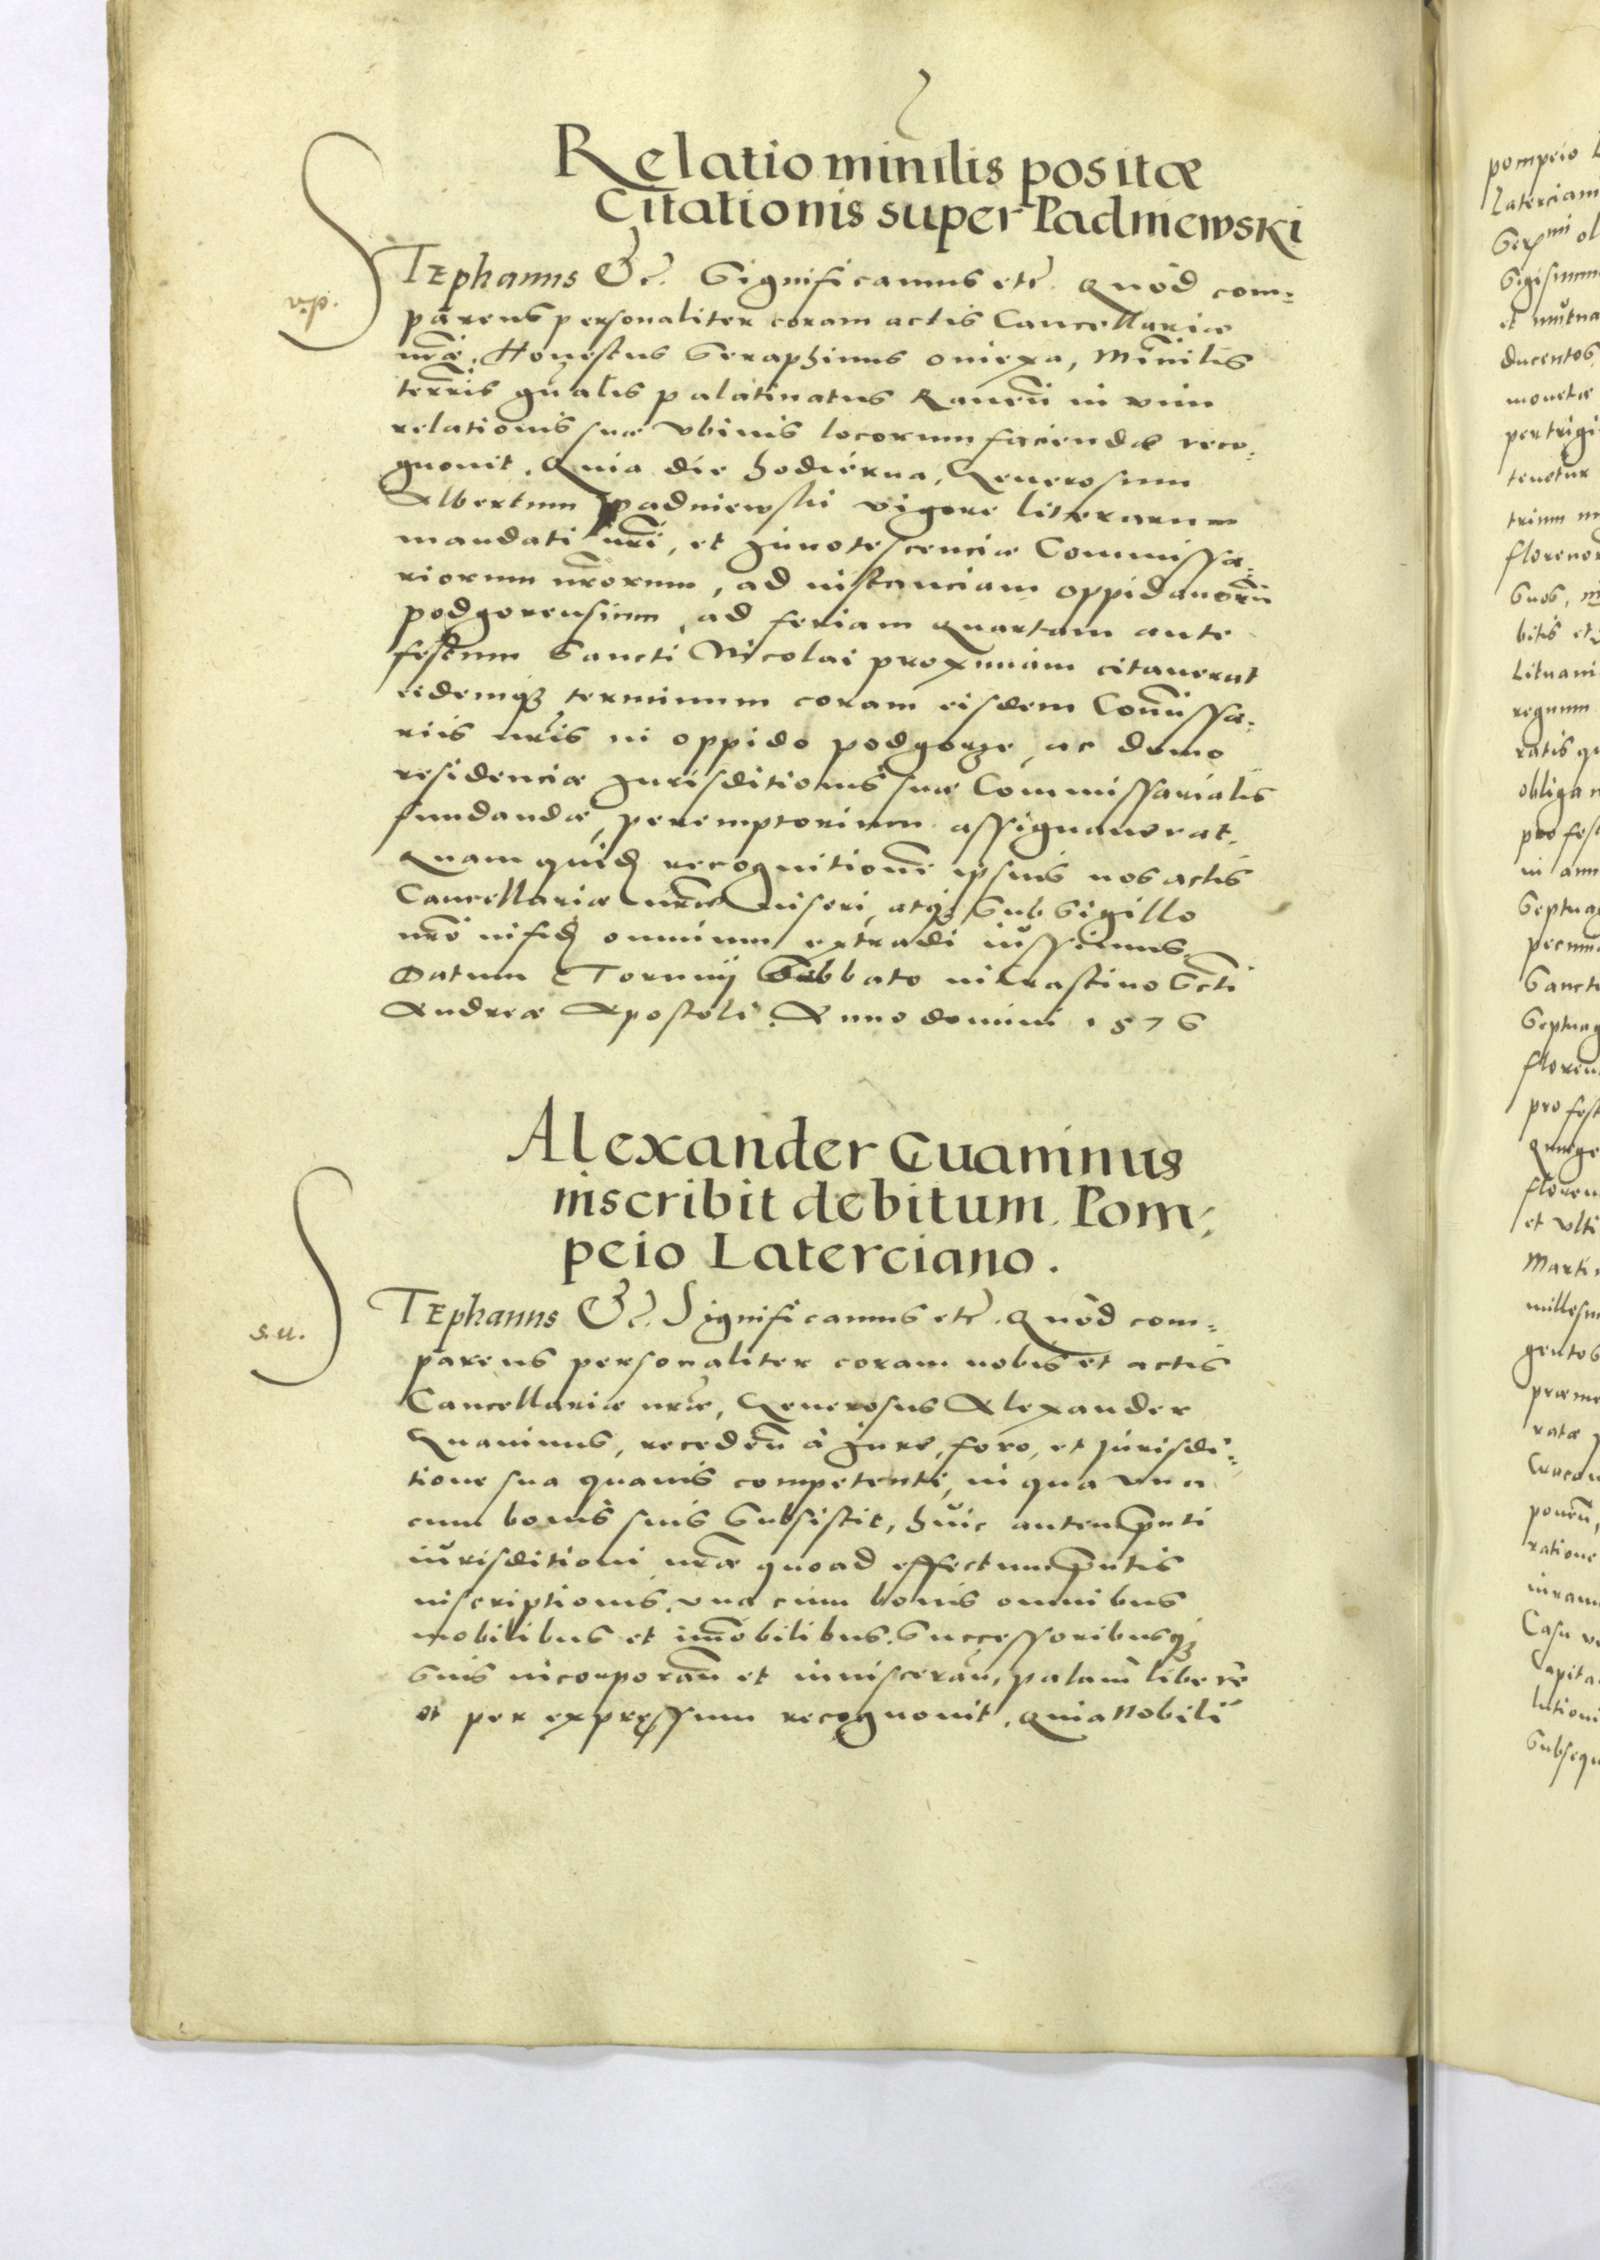 Relatio minilis positæ
Citationis super Padniewski
STEphanus &c. Significamus etc. Quod com=
parens personaliter coram actis Cancellariæ
nræ, Honestus Seraphinus oniexa, Minilis
terris gnalis palatinatus Raven in vim
relationis suæ vbivis locorum faciendæ reco=
gnouit. Quia die hodierna, Generosum
Albertum Padniewski vigore literarum
mandati nri, et Innotescenciæ Commissa=
riorum nrorum, ad instanciam oppidanorum
podgorensium, ad feriam quartam ante
festum Sancti Nicolai proximam citauerat
eidemq3 terminum coram eisdem Comissa=
riis nris in oppido podgorze, ac domo
residenciæ Jurisditionis suæ Commissarialis
fundandæ, peremptorium assignauerat.
Quam quid recognitionem ipsius nos actis
Cancellariæ nræ inseri, atq3 Sub Sigillo
nro in fid omnium extradi iussimus.
Datum Torunij Sabbato in Crastino Scti
Andreæ Apostoli. Anno domini 1576
v.p.
Alexander Guaninus
inscribit debitum Pom=
peio Laterciano.
STEphanus &c. Significamus etc. Quod com=
parens personaliter coram nobis et actis
Cancellariæ nræ, Generosus Alexander
Guaninus, receden à Jure, foro, et Jurisdi=
tione sua quauis competenti, in qua vna
cum bonis suis Subsistit, huic autem pnti
iurisditioni nræ quoad effectum pntis
inscriptionis, vna cum bonis omnibus
mobilibus et imobilibus, Successoribusq3
Suis incorporan et inuisceran, palam libere
et per expressum recognouit, quia Nobili
s.u.
pompeio
Laterciam
Sigismun
et mutua
ducentos
monetæ
tenetur
trium
Lituani
regnum
ratis
obligan
pro fes
in ann
Septuag
pecuni
Sancti
Septuag
floren
pro fest
floren
et vlti
Marti
millesim
gentos
ratæ
ponen,
ratione
Casu
Capita
Subsequ